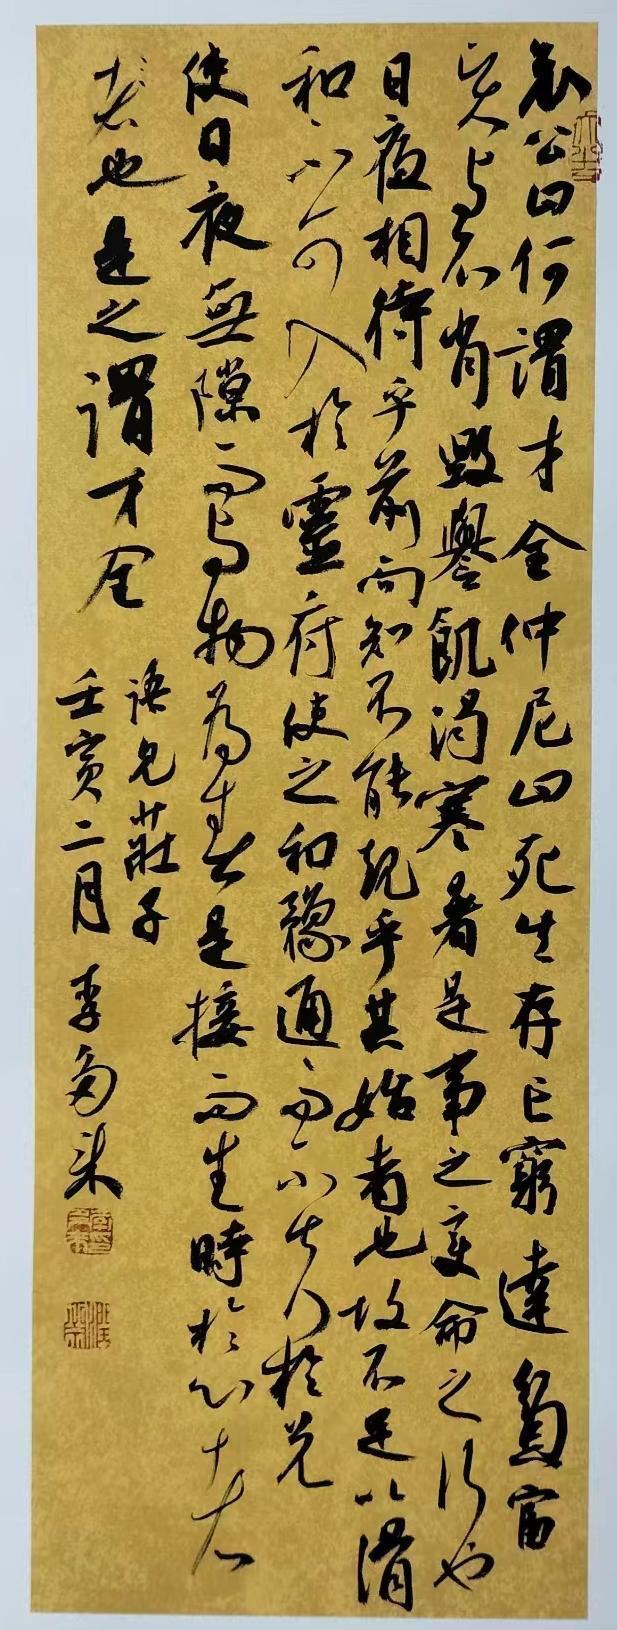 哀公曰何謂才全仲尼曰死生存亡窮達貧富
賢與不肖毀譽飢渴寒暑是事之變命之行也
日夜相待乎前而知不能規乎其始者也故不足以滑
和不可入於靈府使之和豫通而不失於兌
使日夜無隙而與物為春是接而生時於心者
者也是之謂才全
語見莊子
壬寅二月李